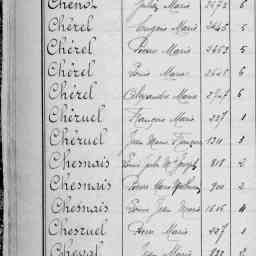 Chenol Jules Marie 2572 6
Chérel Eugène Marie 2645 5
Chérel Pierre Marie 2653 5
Chérel Louis Marie 2645 6
Chérel Alexandre Marie 2747 6
Chéruel François Marie 227 1
Chéruel Jean Marie François 1311 3
Chesnais Marie 818 2
Chesnais Pierre Marie 900 2
Chesnais Pierre Jean Marie 1616 4
Chesruel Pierre Marie 227 1
Cheval Jean Marie 822 2